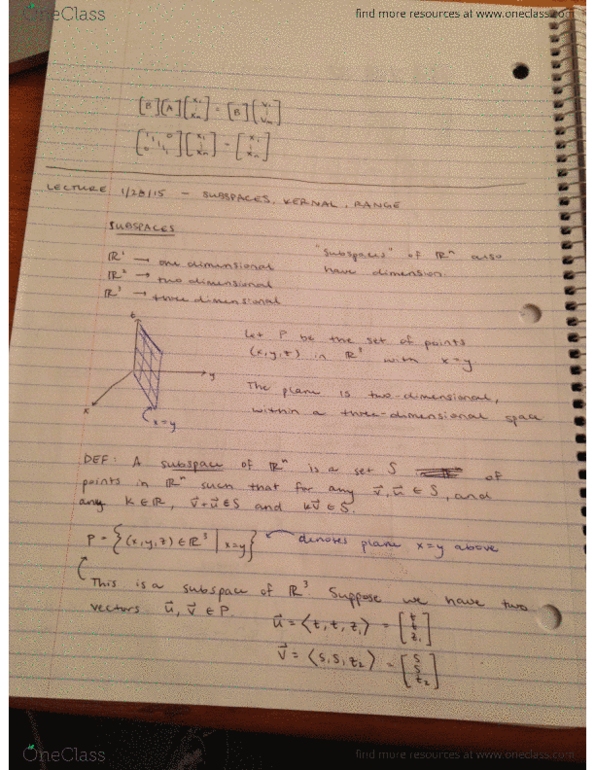 OneClass
find more resources at www.oneclass.com
[B][A][x₁ ⋮ xₙ] = [B][v₁ ⋮ vₙ]
[x₁ ⋮ xₙ] = [x₁ ⋮ xₙ]
LECTURE 1/28/15 - SUBSPACES, KERNAL, RANGE
SUBSPACES
ℝ¹ → one dimensional
ℝ² → two dimensional
ℝ³ → three dimensional
"Subspaces" of ℝⁿ also
have dimension
z
y
x
x=y
Let P be the set of points
(x,y,z) in ℝ³ with x=y
The plane is two-dimensional,
within a three-dimensional space
DEF: A subspace of ℝⁿ is a set S of
points in ℝⁿ such that for any v⃗, u⃗ ∈ S, and
any k ∈ ℝ, v⃗+u⃗ ∈ S and kv⃗ ∈ S.
P = {(x,y,z) ∈ ℝ³ | x=y} denotes plane x=y above
This is a subspace of ℝ³. Suppose we have two
vectors u⃗, v⃗ ∈ P.
u⃗ = ⟨t, t, z₁⟩ = [t t z₁]
v⃗ = ⟨s, s, z₂⟩ = [s s z₂]
OneClass
find more resources at www.oneclass.com